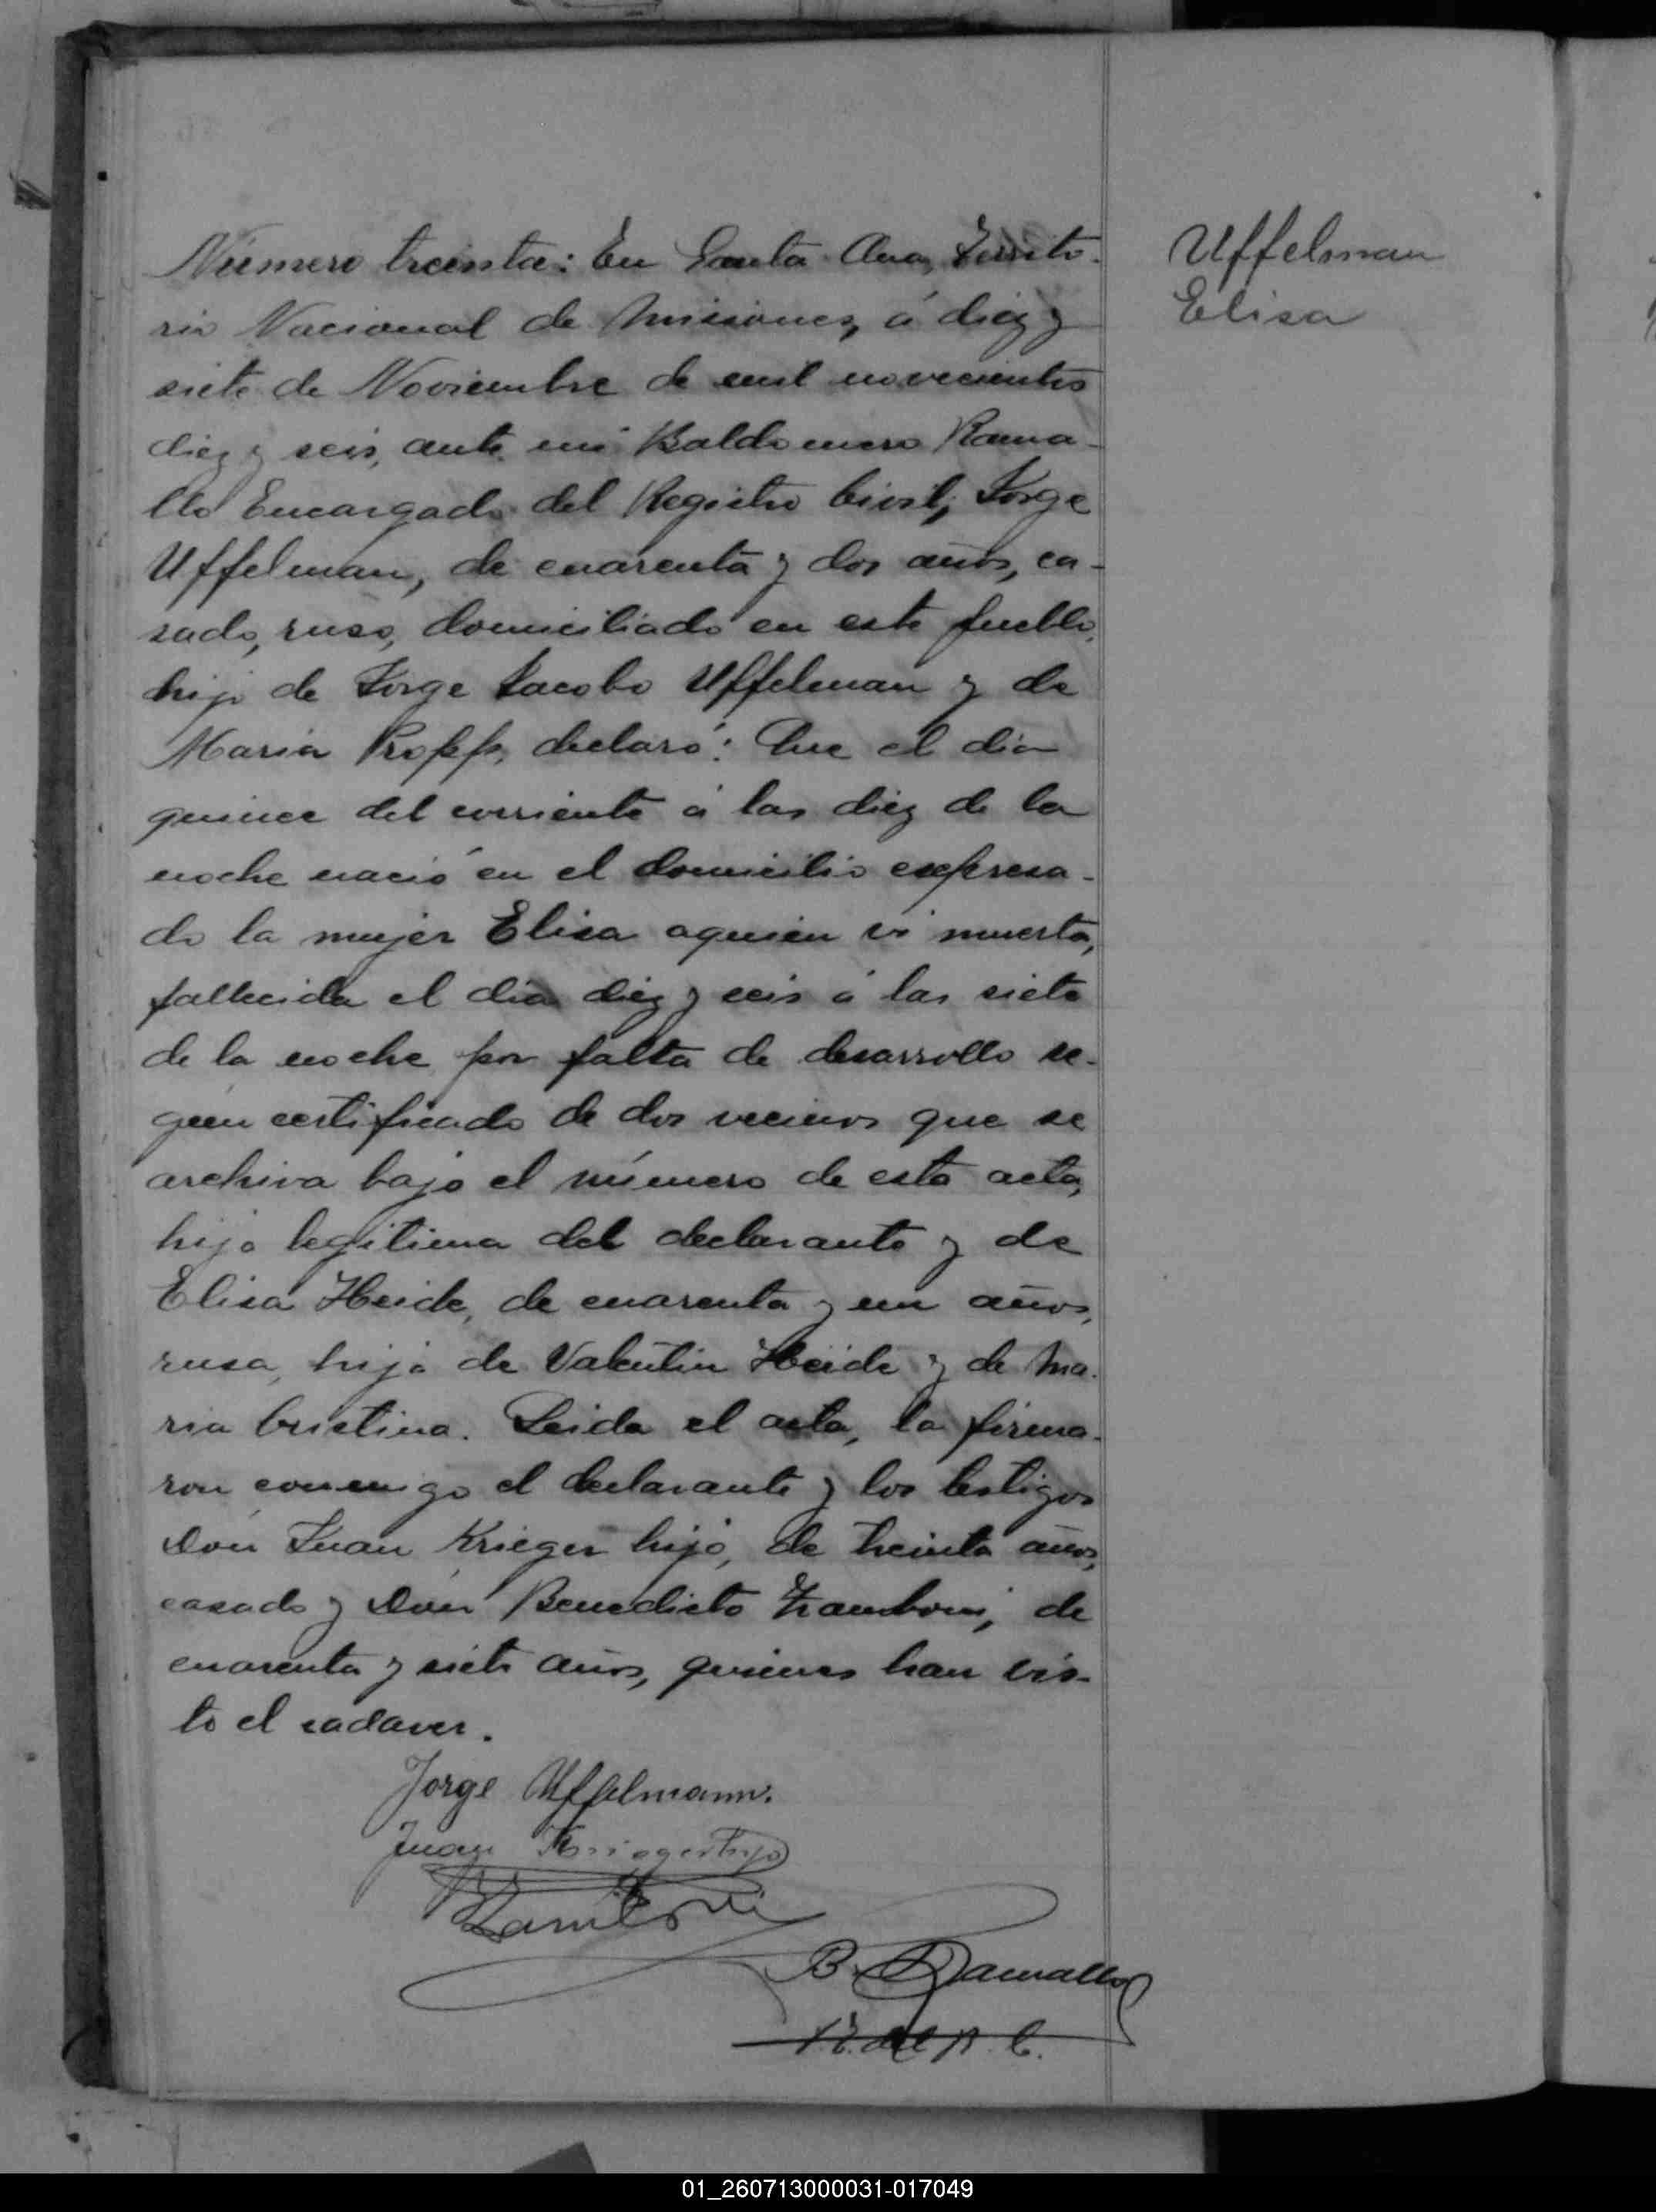 Número treinta: En Santa Ana, Territo-
rio Nacional de Misiones, á diez y
siete de Noviembre de mil novecientos
diez y seis, ante mi Baldomero Rama-
llo Encargado del Registro Civil, Jorge
Uffelman, de cuarenta y dos años, ca-
sado, ruso, domiciliado en este pueblo,
hijo de Jorge Jacobo Uffelman y de
Maria Propp, declaró: Que el dia
quince del corriente á las diez de la
noche nació en el domicilio expresa-
do la mujer Elisa aquien vi muerta,
fallecida el dia diez y seis á las siete
de la noche por falta de desarrollo se-
gun certificado de dos vecinos que se
archiva bajo el número de esta acta,
hija legitima del declarante y de
Elisa Heide, de cuarenta y un años,
rusa, hija de Valentin Heide y de Ma-
ria Cristina. Leida el acta, la firma-
ron conmigo el declarante y los testigos
Don Juan Krieger hijo, de treinta años,
casado y Don Benedicto Zamboni, de
cuarenta y siete años, quienes han vis-
to el cadaver.
Jorge Uffelmann.
Juan Krieger hijo
Zamboni
B. Ramallo
E. del R. C.
Uffelman
Elisa
01_260713000031-017049